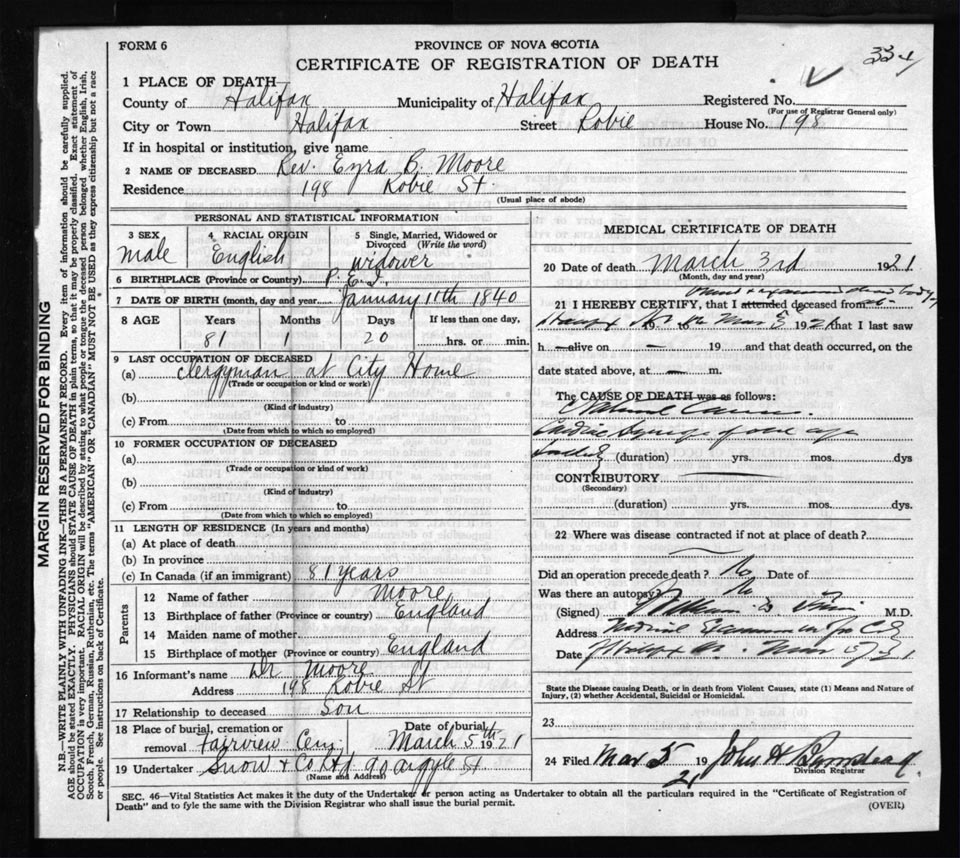 FORM 6
PROVINCE OF NOVA SCOTIA
CERTIFICATE OF REGISTRATION OF DEATH
334
1 PLACE OF DEATH
County of Halifax Municipality of Halifax Registered No.
(For use of Registrar General only)
City or Town Halifax Street Robie House No. 198
If in hospital or institution, give name
2 NAME OF DECEASED Rev. Ezra B. Moore
Residence 198 Robie St.
(Usual place of abode)
PERSONAL AND STATISTICAL INFORMATION
3 SEX male
4 RACIAL ORIGIN English
5 Single, Married, Widowed or Divorced (Write the word) widower
6 BIRTHPLACE (Province or Country) P. E. I.
7 DATE OF BIRTH (month, day and year) January 11th 1840
8 AGE Years Months Days If less than one day,
81 1 20 hrs. or min.
9 LAST OCCUPATION OF DECEASED
(a) Clergyman at City Home
(Trade or occupation or kind of work)
(b)
(Kind of industry)
(c) From to
(Date from which to which so employed)
10 FORMER OCCUPATION OF DECEASED
(a)
(Trade or occupation or kind of work)
(b)
(Kind of industry)
(c) From to
(Date from which to which so employed)
11 LENGTH OF RESIDENCE (In years and months)
(a) At place of death
(b) In province
(c) In Canada (if an immigrant) 81 years
Parents
12 Name of father Moore
13 Birthplace of father (Province or country) England
14 Maiden name of mother
15 Birthplace of mother (Province or country) England
16 Informant's name Dr Moore
Address 198 Robie St
17 Relationship to deceased Son
18 Place of burial, cremation or removal Fairview Cem. Date of burial March 5th 1921
19 Undertaker Snow & Co Ltd 90 Argyle St
(Name and Address)
MEDICAL CERTIFICATE OF DEATH
20 Date of death March 3rd 1921
(Month, day and year)
21 I HEREBY CERTIFY, that I attended deceased from
19 to Mar 1921 that I last saw
h alive on 19 and that death occurred, on the
date stated above, at m.
The CAUSE OF DEATH was as follows:
Natural Causes.
old age
(duration) yrs. mos. dys
CONTRIBUTORY
(Secondary)
(duration) yrs. mos. dys.
22 Where was disease contracted if not at place of death?
Did an operation precede death? No Date of
Was there an autopsy? No
(Signed) M.D.
Address Medical Examiner for
Date Halifax
State the Disease causing Death, or in death from Violent Causes, state (1) Means and Nature of Injury, (2) whether Accidental, Suicidal or Homicidal.
23
24 Filed Mar 5 19 21 John H Barnstead
Division Registrar
SEC. 46—Vital Statistics Act makes it the duty of the Undertaker or person acting as Undertaker to obtain all the particulars required in the "Certificate of Registration of
Death" and to fyle the same with the Division Registrar who shall issue the burial permit.
(OVER)
MARGIN RESERVED FOR BINDING
N.B.—WRITE PLAINLY WITH UNFADING INK—THIS IS A PERMANENT RECORD. Every item of information should be carefully supplied.
AGE should be stated EXACTLY. PHYSICIANS should STATE CAUSE OF DEATH in plain terms, so that it may be properly classified. Exact statement of
OCCUPATION is very important. RACIAL ORIGIN will be described by stating to what people or tongue the deceased person belonged whether English, Irish,
Scotch, French, German, Russian, Ruthenian, etc. The terms "AMERICAN" OR "CANADIAN" MUST NOT BE USED as they express citizenship but not a race
or people. See instructions on back of Certificate.